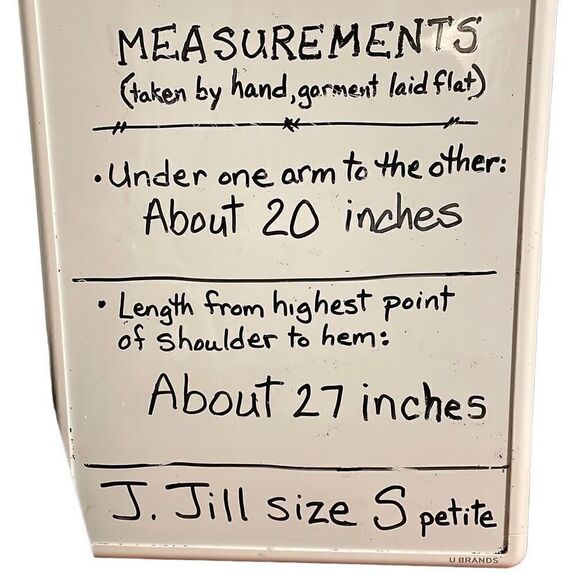 MEASUREMENTS
(taken by hand, garment laid flat)
• Under one arm to the other:
About 20 inches
• Length from highest point
of shoulder to hem:
About 27 inches
J. Jill size S petite
U BRANDS